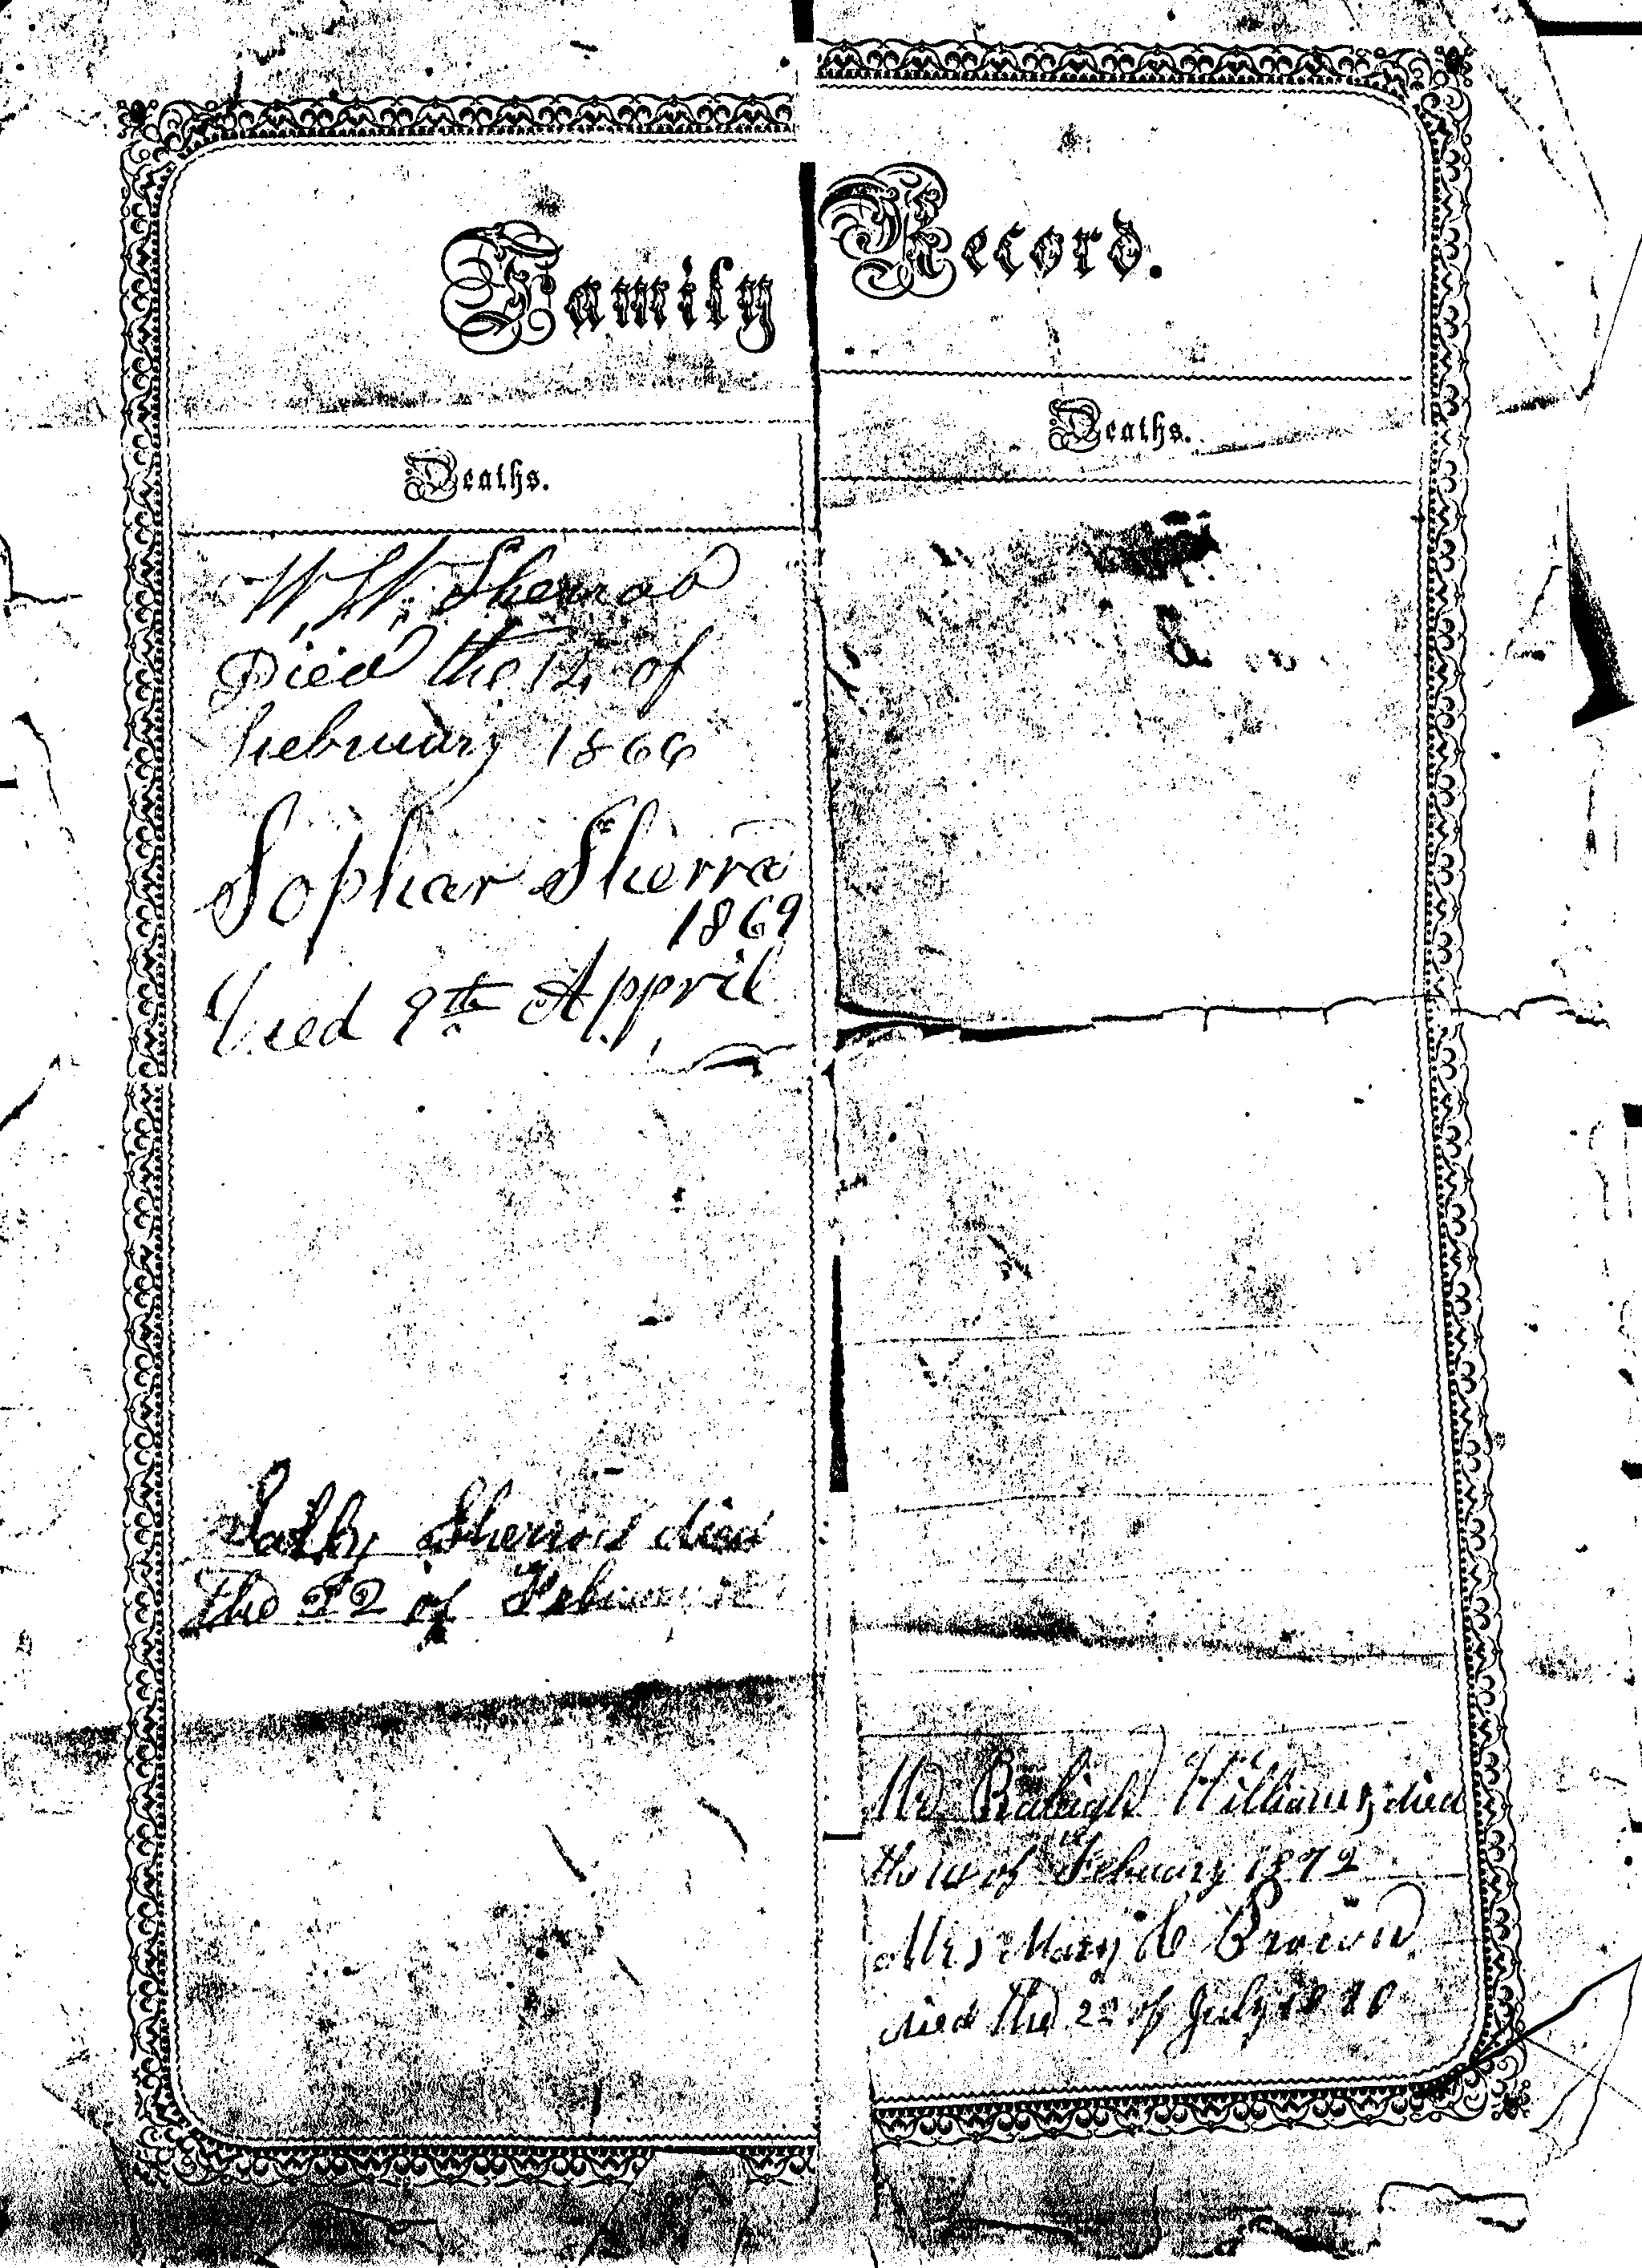 Family Record.
Deaths.
W, W, Sherrod
Died the 14 of
February 1866
Sophar Sherra
1869
Died 9th Appril
Sally Sherrod died
the 22 of
Deaths.
Mr Raleigh Williams died
the of Febuary 1872
Mrs Mary C Brown
died the 22 of July